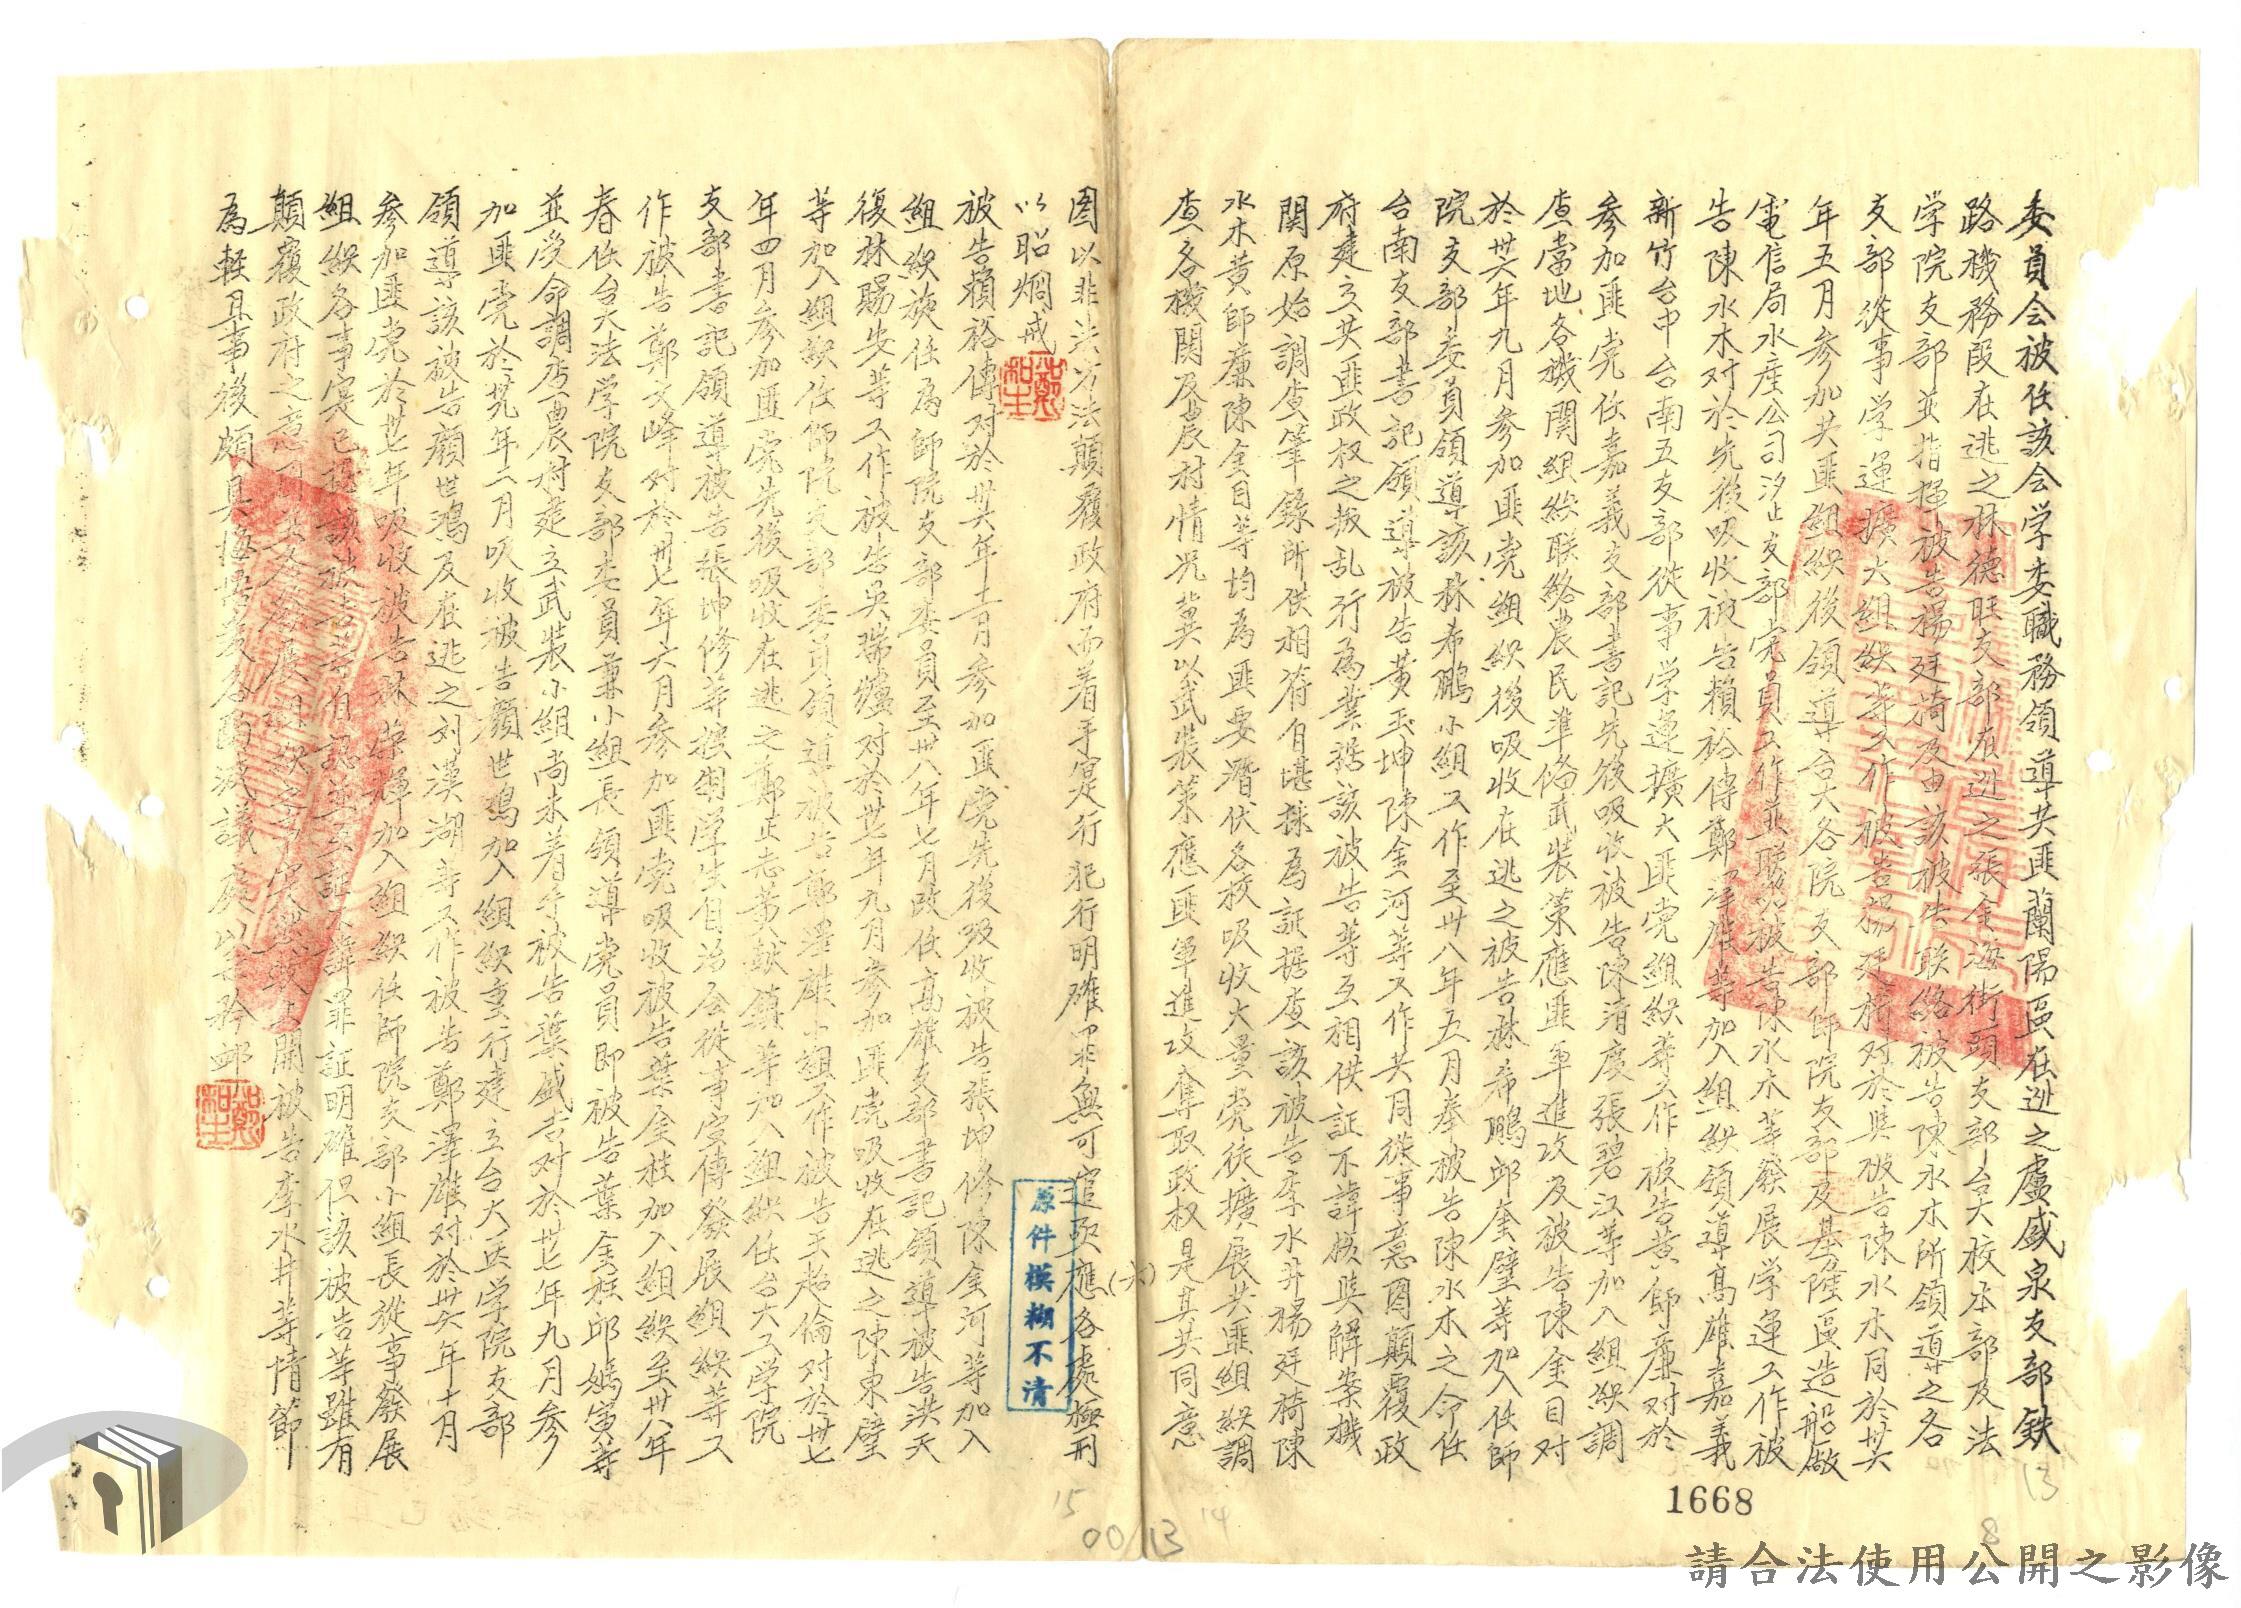 委員会被任該会学委職務領導共匪蘭陽區在逃之盧盛泉支部鉄
路機務段在逃之林德旺支部在逃之張金海街頭支部台大校本部及法
学院支部並指揮被告楊廷椅及由該被告联絡被告陳水木所領導之各
支部從事学運擴大組織等工作被告楊廷椅对於與被告陳水木同於卅六
年五月参加共匪組織後領導台大各院支部師院支部及基隆區造船廠
電信局水産公司汐止支部党員工作並联絡被告陳水木等發展学運工作被
告陳水木对於先後吸收被告賴裕傳鄭澤雄等加入組織領導高雄嘉義
新竹台中台南五支部從事学運擴大匪党組織等工作被告黄師廉对於
参加匪党任嘉義支部書記先後吸收被告陳清度張碧江等加入組織調
查當地各機関組織联絡農民準俻武裝策應匪军進攻及被告陳金目对
於卅六年九月参加匪党組織後吸收在逃之被告林希鵬邱奎璧等加入任師
院支部委員領導該林希鵬小組工作至卅八年五月奉被告陳水木之命任
台南支部書記領導被告黄玉坤陳金河等工作共同從事意图顛覆政
府建立共匪政权之叛乱行為業據該被告等互相供証不諱核與解案機
関原始調查筆錄所供相符自堪採為証据查該被告李水井楊廷椅陳
水木黄師廉陳金目等均為匪要潛伏各校吸收大量党徒擴展共匪組織調
查各機関及農村情况冀以武裝策應匪军進攻奪取政权是其共同意
图以非法方法顛覆政府而着手寔行犯行明確罪無可逭亟應各處極刑
以昭烱戒
被告賴裕傳对於卅六年十一月参加匪党先後吸收被告張坤修陳金河等加入
組織旋任為師院支部委員至卅八年七月改任高雄支部書記領導被告洪天
復林賜安等工作被告吳瑞爐对於卅七年九月参加匪党吸收在逃之陳東璧
等加入組織任師院支部委員領導被告鄭澤雄小組工作被告王超倫对於卅七
年四月参加匪党先後吸收在逃之鄭正忠黄献鎮等加入組織任台大工学院
支部書記領導被告張坤修等控制学生自治会從事宣傳發展組織等工
作被告鄭文峰对於卅七年六月参加匪党吸收被告葉金柱加入組織至卅八年
春任台大法学院支部委員兼小組長領導党員即被告葉金柱邱媽寅等
並受命調查農村建立武裝小組尚未着手被告葉盛吉对於卅七年九月参
加匪党於卅九年二月吸收被告顏世鴻加入組織重行建立台大医学院支部
領導該被告顏世鴻及在逃之刘漢湖等工作被告鄭澤雄对於卅六年十月
参加匪党於卅七年吸收被告林榮輝加入組織任師院支部小組長從事發展
組織各事寔已據該被告等自認並互証不諱罪証明確但該被告等雖有
顛覆政府之意图共又發展組織之事寔惟較上開被告李水井等情節
為輕且事後頗具悔悟
鄭相
原件模糊不清
(六)
1668
13
8
14
15
0013
請合法使用公開之影像